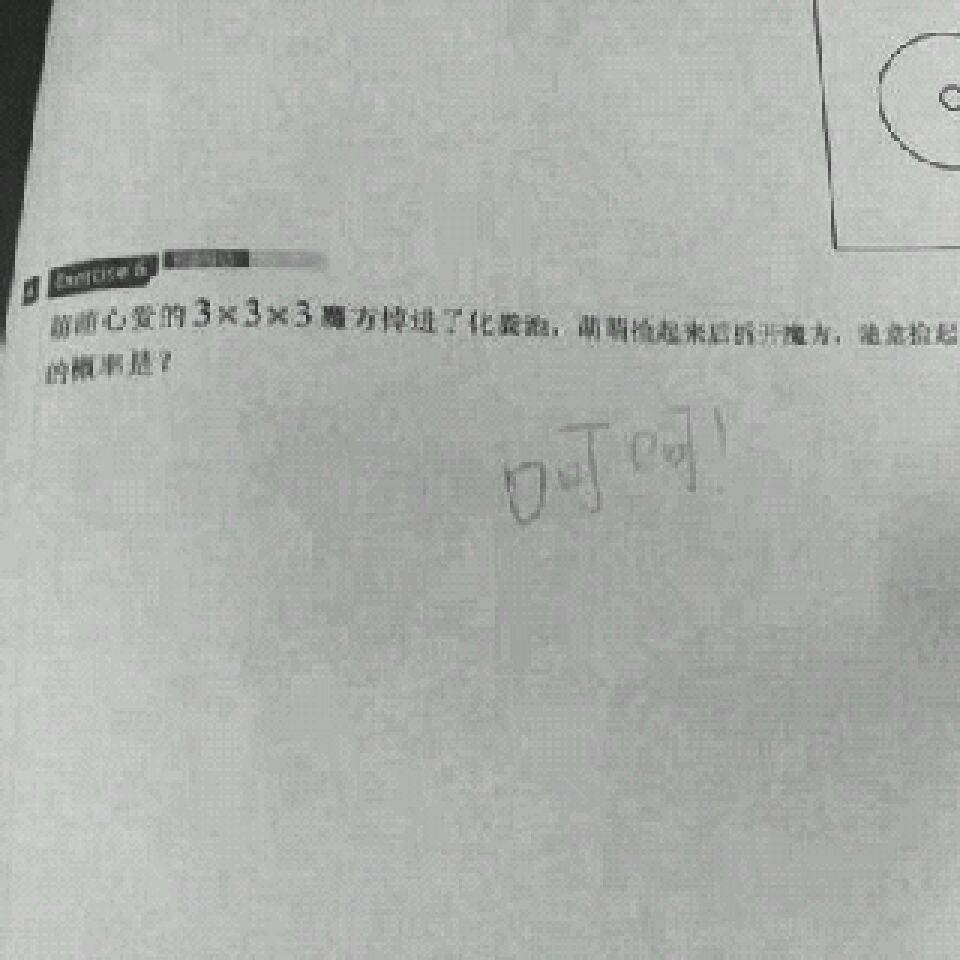 Exercise 6
萌萌心爱的3×3×3魔方掉进了化粪池，萌萌捡起来后拆开魔方，随意捡起
的概率是？
呵呵！